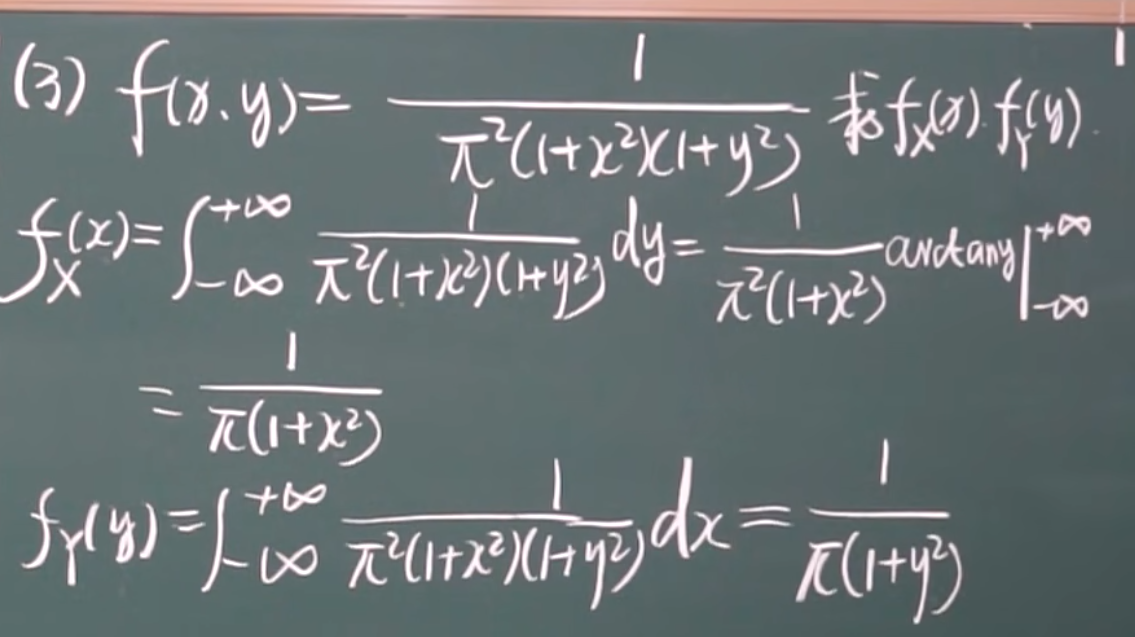 (3) f(x.y)= 1/(π²(1+x²)(1+y²)) 求 f_X(x). f_Y(y).
f_X(x)=∫_{-∞}^{+∞} 1/(π²(1+x²)(1+y²)) dy= 1/(π²(1+x²)) arctany|_{-∞}^{+∞}
= 1/(π(1+x²))
f_Y(y)=∫_{-∞}^{+∞} 1/(π²(1+x²)(1+y²)) dx= 1/(π(1+y²))